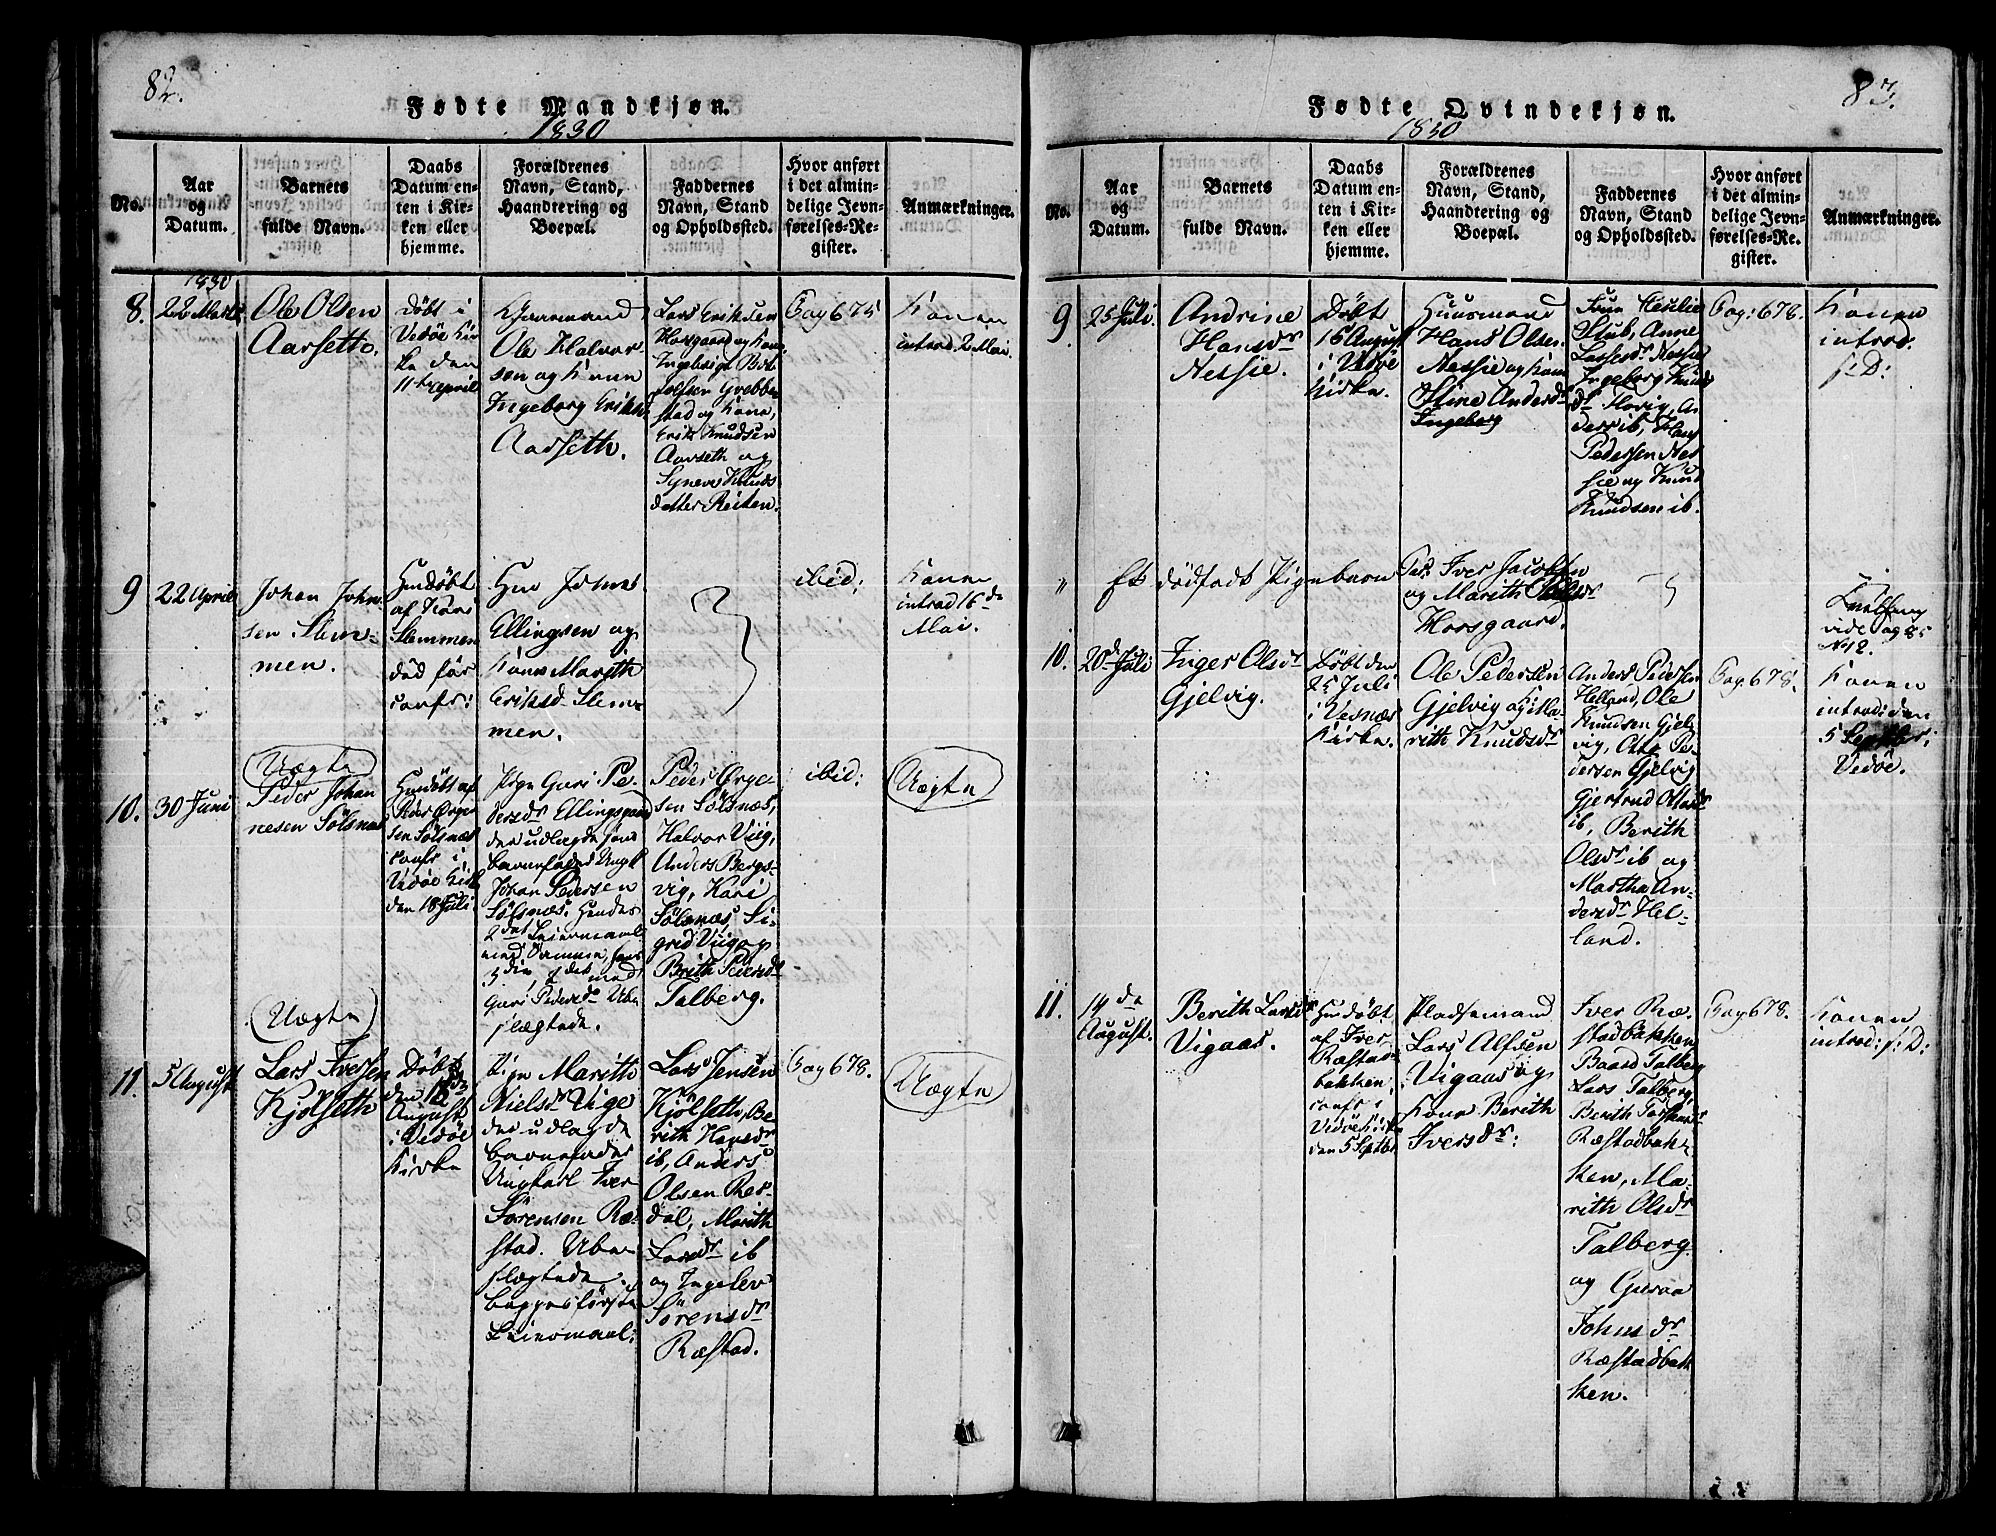 82.
Fødte Mandkjøn.
1830
No.
Aar
og
Datum.
Barnets
fulde Navn.
Daabs
Datum en-
ten i Kir-
ken eller
hjemme.
Forældrenes
Navn, Stand,
Haandtering og
Boepæl.
Faddernes
Navn, Stand
og Opholdssted.
Hvor anført
i det almin-
delige Jevn-
førelses-Re-
gister.
Anmærkninger.
1830
8.
22 Marts
Ole Olsen
Aarsetto.
Døbt i
Vedøe Kir
ke den
11te April
Ole Halvor
sen og Kone
Ingeborg Eriksd
Aarseth.
Lars Eriksen
Horsgaard og Kone
Stad og Kone,
Erik Knudsen
Aarseth og
Synev Knuds
datter Reiten.
Pag 675
Konen
introd. 2 Mai.
9
22 April
Johan John
sen Slem-
men.
Hmdøbt
af Kari
Slemmen
død før
confr:
Ellingsen og
Kone Marith
Eriksd Slem
men.
ibid:
Konen
introd 16 de
Mai.
10.
30 Juni
Uægte
Peder Johan
nesen Sølsnæs
Hmdøbt af
Peder Ørge
sen Sølsnæs
confr i
Vedøe Kirk
den 18 Juli
Pige Guri Pe-
dersdr Ellingsgaard
der udlagde som
barnefader Ungk
Johan Pedersen
Sølsnæs. Hendes
2det Leiermaal
med Samme, hans
Guri Pedersdr Ube
slægtede.
Peder Ørge-
sen Sølsnæs,
Halvor Viig,
Anders Bergs-
vig, Kari
Sølsnæs, Si-
grid Viig og
Brith Peersdr
Talberg.
ibid:
Uægte
11.
5 August
Uægte
Lars Iversen
Kjølseth
Døbt
den 18de
August
i Vedøe
Kirke
Pige Marith
Nielsdr Vige
der udlagde
barnefader
Ungkarl Iver
Sørensen Ræ-
stad. Ube-
slægtede.
begges første
Leiermaal.
Lars Jensen
Kjølseth, Be-
rith Hansdr
ib, Anders
Olsen Rer-
dal, Marith
Larsdr ib
og Ingelev
Sørensdr
Ræstad.
Pag 678.
Uægte
83.
Fødte Qvindekjøn.
1830
No.
Aar
og
Datum.
Barnets
fulde Navn.
Daabs
Datum en-
ten i Kir-
ken eller
hjemme.
Forældrenes
Navn, Stand,
Haandtering og
Boepæl.
Faddernes
Navn, Stand
og Opholdssted.
Hvor anført
i det almin-
delige Jevn-
førelses-Re-
gister.
Anmærkninger.
9.
25 Juli.
Andrine
Hansdr
Nessie.
Døbt
16 August
i Vedøe
Kirke.
Huusmand
Hans Olsen
Nessie og Kone
Stine Andersdr
Ingeborg
Stub, Anne
Larsesdr Nessie
Ingeborg Knuds
Pedersen Nes
sie og Knud
Knudsen ib.
Pag: 678.
Konen
introd.
s: D:
"
Et dødfødt Pigebarn
Iver Jacobsen
og Marith
Horsgaard.
vide pag 85
No 2.
10.
20de Juli
Inger Olsdr
Gjelvig.
Døbt den
25 Juli
i Vesnæs
Kirke.
Ole Pedersen
Gjelvig og K: Ma-
rith Knudsdr
Anders Pedersen
Helland, Ole
Knudsen Gjel-
vig, Otto Pe-
dersen Gjelvig
Gjertrud Olsdr
ib, Berith
Olsdr ib og
Martha An-
dersdr Hel-
land.
Pag. 678.
Konen
introd: den
5 Septbr:
Vedøe.
11.
14 de
August.
Berith Larsdr
Vigaas.
Hmdøbt
af Iver
Ræstad-
bakken,
confr i
Vedøe Kirke
den 5 Septbr
Pladsemand
Lars Alfsen
Vigaas og
Kone Berith
Iversdr:
Iver Ræ-
stadbakken
Baard Talberg
Lars Talberg
Berith
Ræstadbak-
ken, Ma-
rith Olsdr
Talberg
og Guroe
Johnsdr
Ræstadbak
ken.
Pag 678.
Konen
introd: s: D: